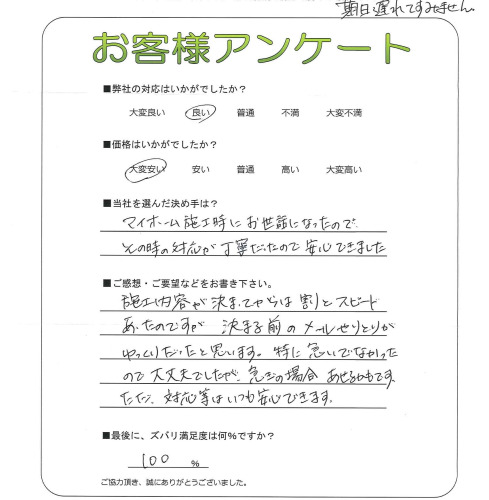 期日遅れてすみません。
お客様アンケート
■弊社の対応はいかがでしたか？
大変良い 良い 普通 不満 大変不満
■価格はいかがでしたか？
大変安い 安い 普通 高い 大変高い
■当社を選んだ決め手は？
マイホーム施工時にお世話になったので、
その時の対応が丁寧だったので安心できました
■ご感想・ご要望などをお書き下さい。
施工内容が決まってからは割とスピード
あったのですが 決まる前のメールやりとりが
ゆっくりだったと思います。特に急いでなかった
ので大丈夫でしたが、急ぎの場合あせるかもです。
ただ、対応等はいつも安心できます。
■最後に、ズバリ満足度は何％ですか？
100 ％
ご協力頂き、誠にありがとうございました。